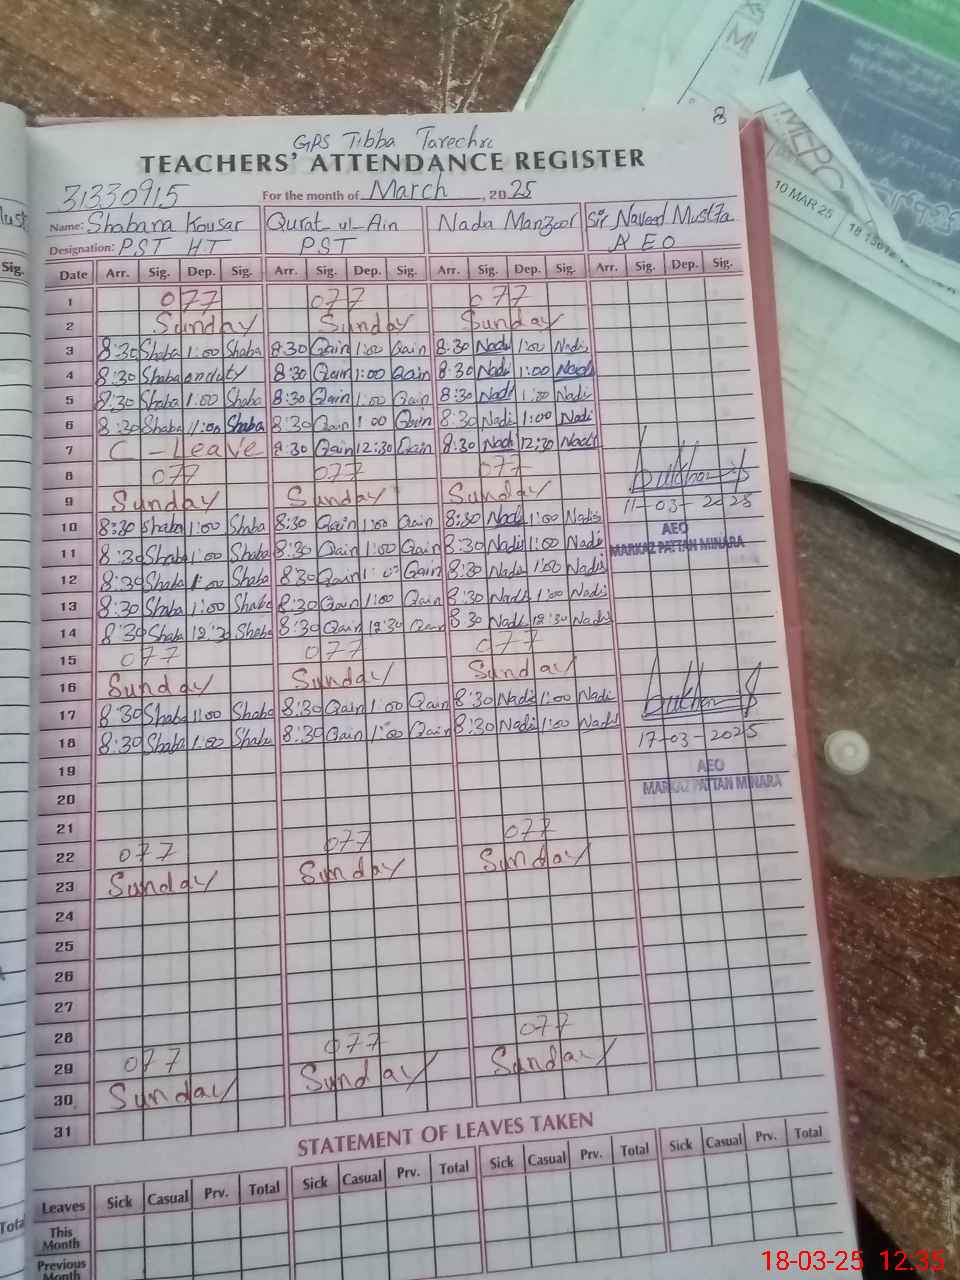 8
GPS Tibba Tarechra
TEACHERS' ATTENDANCE REGISTER
31330915 For the month of March, 2025
Name: Shabana Kousar Qurat ul-Ain Nada Manzoor Sir Naveed Mustfa
Designation: PST HT PST AEO
Date Arr. Sig. Dep. Sig. Arr. Sig. Dep. Sig. Arr. Sig. Dep. Sig. Arr. Sig. Dep. Sig.
1 077 077 077
2 Sunday Sunday Sunday
3 8:30 Shaba 1:00 Shaba 8:30 Qain 1:00 Qain 8:30 Nadi 1:00 Nadi
4 8:30 Shaba onduty 8:30 Qain 1:00 Qain 8:30 Nadi 1:00 Nadi
5 8:30 Shaba 1:00 Shaba 8:30 Qain 1:00 Qain 8:30 Nadi 1:00 Nadi
6 8:30 Shaba 1:00 Shaba 8:30 Qain 1:00 Qain 8:30 Nadi 1:00 Nadi
7 C-Leave 8:30 Qain 12:30 Qain 8:30 Nadi 12:30 Nadi
8 077 077 077
9 Sunday Sunday Sunday 11-03-2025
10 8:30 Shaba 1:00 Shaba 8:30 Qain 1:00 Qain 8:30 Nadi 1:00 Nadi AEO
11 8:30 Shaba 1:00 Shaba 8:30 Qain 1:00 Qain 8:30 Nadi 1:00 Nadi MARKAZ PATTAN MINARA
12 8:30 Shaba 1:00 Shaba 8:30 Qain 1:00 Qain 8:30 Nadi 1:00 Nadi
13 8:30 Shaba 1:00 Shaba 8:30 Qain 1:00 Qain 8:30 Nadi 1:00 Nadi
14 8:30 Shaba 12:30 Shaba 8:30 Qain 12:30 Qain 8:30 Nadi 12:30 Nadi
15 077 077 077
16 Sunday Sunday Sunday
17 8:30 Shaba 1:00 Shaba 8:30 Qain 1:00 Qain 8:30 Nadi 1:00 Nadi
18 8:30 Shaba 1:00 Shaba 8:30 Qain 1:00 Qain 8:30 Nadi 1:00 Nadi 17-03-2025
19 AEO
20 MARKAZ PATTAN MINARA
21
22 077 077 077
23 Sunday Sunday Sunday
24
25
26
27
28
29 077 077 077
30 Sunday Sunday Sunday
31
STATEMENT OF LEAVES TAKEN
Leaves Sick Casual Prv. Total Sick Casual Prv. Total Sick Casual Prv. Total Sick Casual Prv. Total
This Month
Previous Month
Sig.
Total
10 MAR 25
18-03-25 12:35